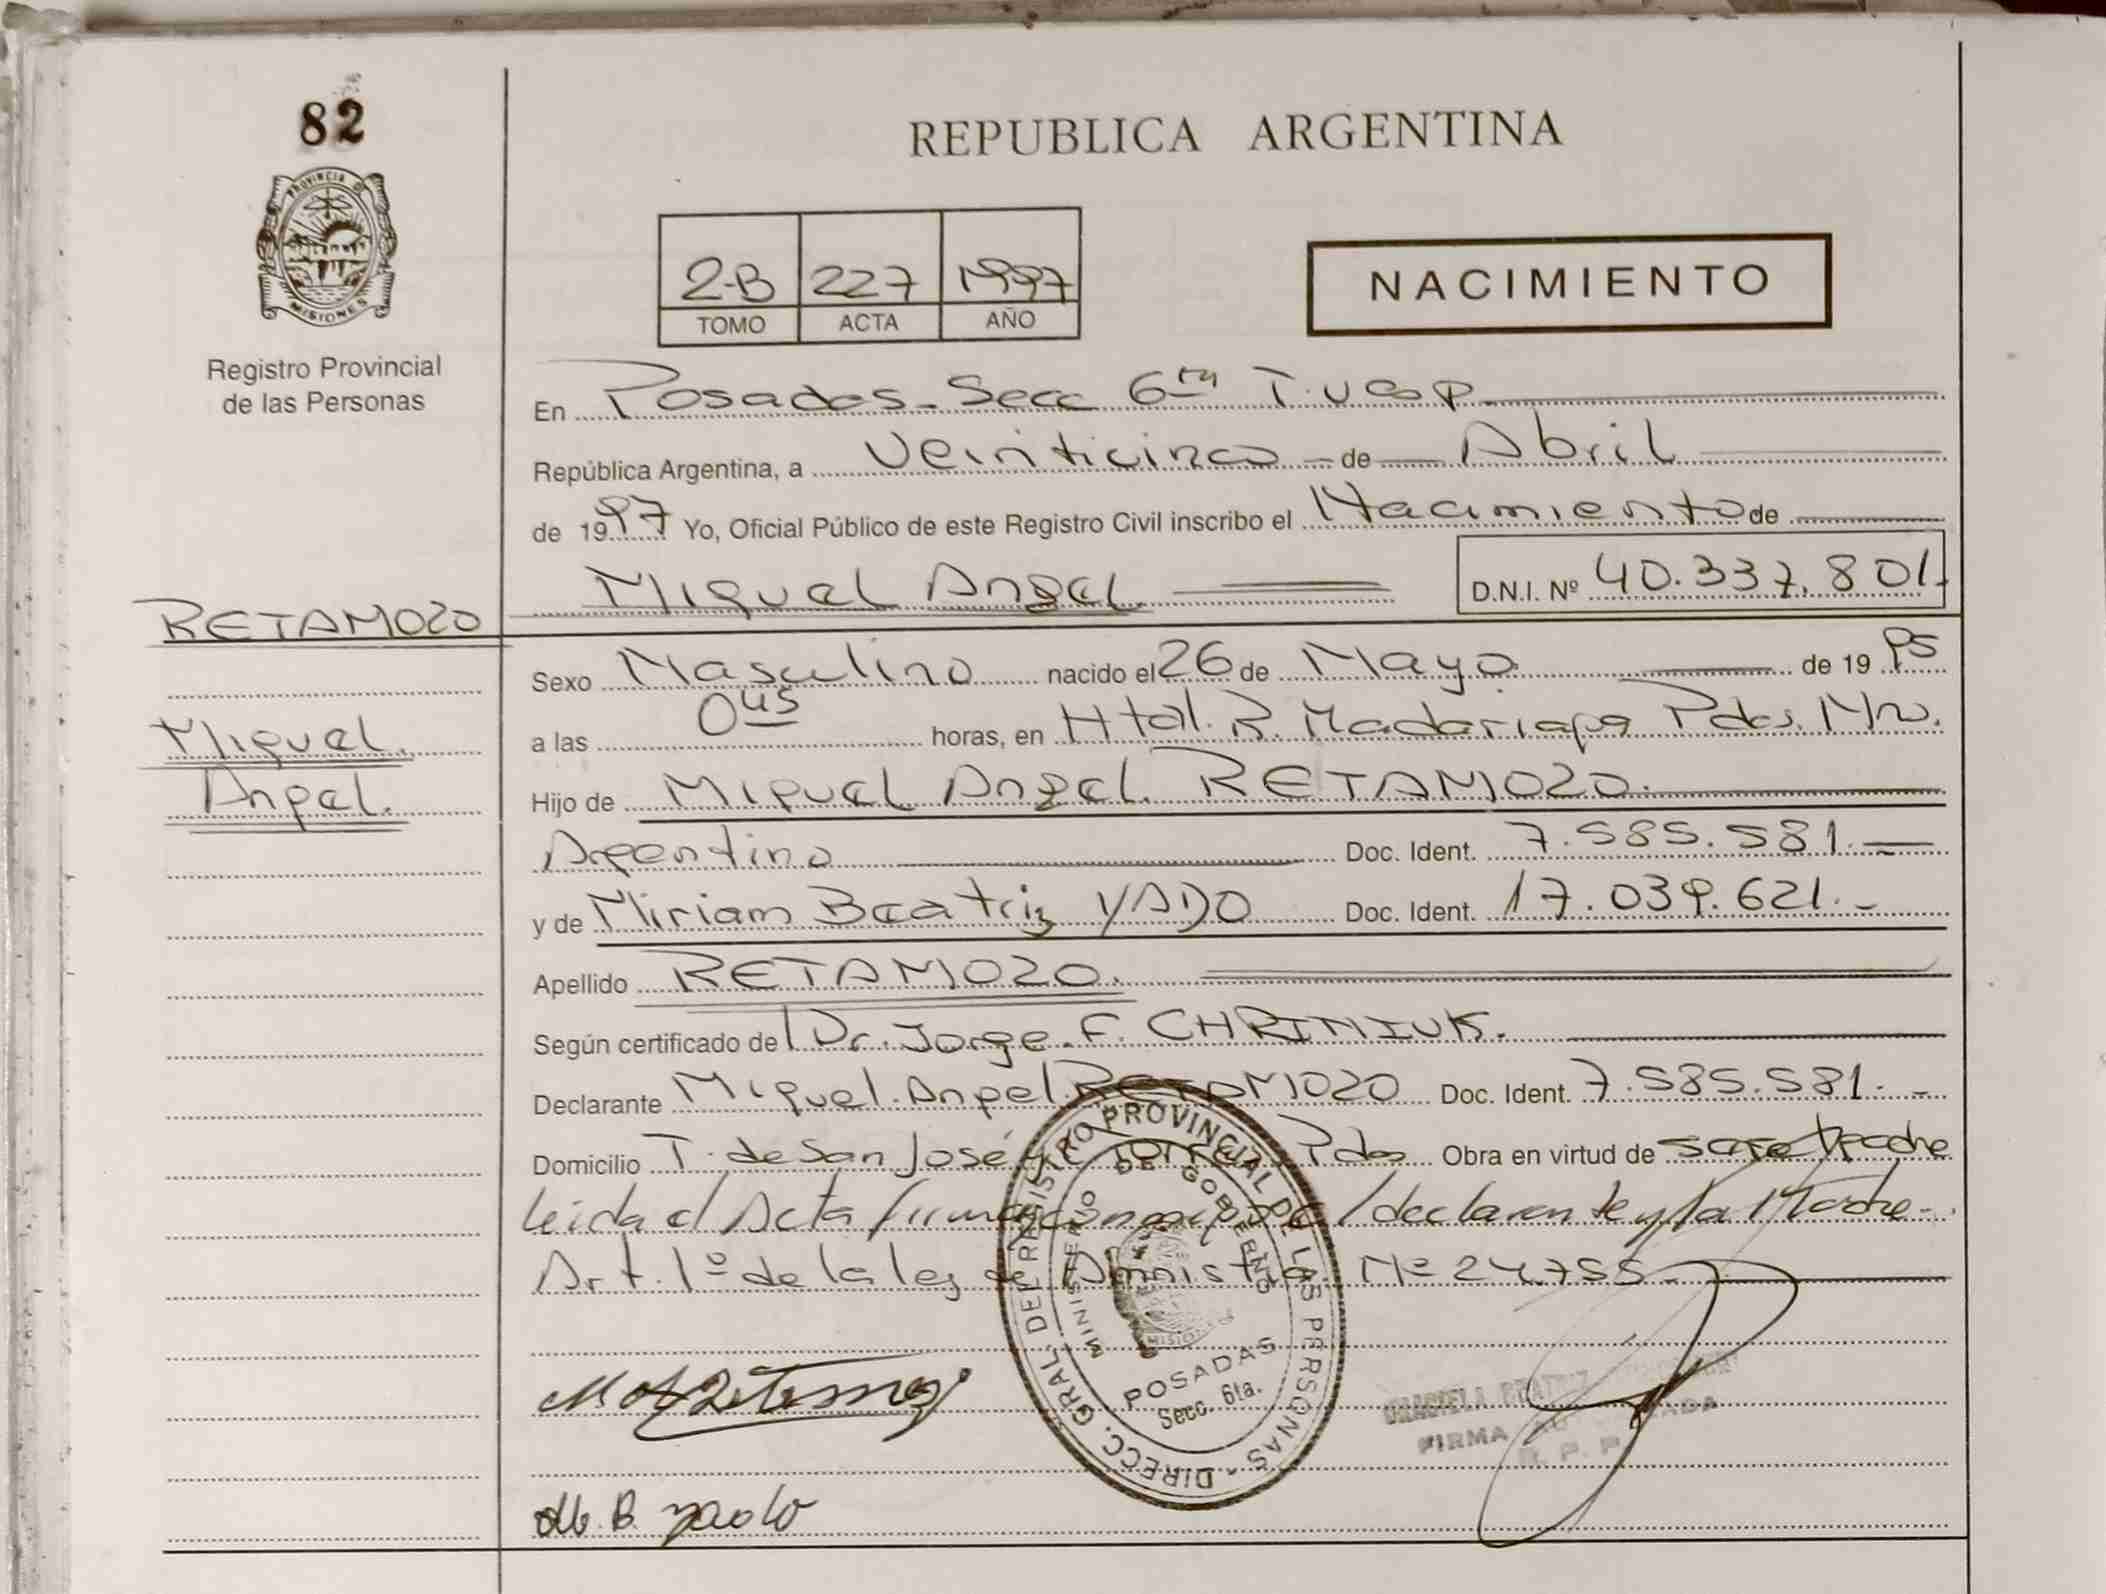 82
PROVINCIA D
MISIONES
Registro Provincial
de las Personas
REPUBLICA ARGENTINA
2-B 227 1997
TOMO ACTA AÑO
NACIMIENTO
En Posadas - Secc 6ta T.
República Argentina, a Veinticinco de Abril
de 1997 Yo, Oficial Público de este Registro Civil inscribo el Nacimiento de
Miguel Angel. D.N.I. Nº 40.337.801.-
RETAMOZO
Miguel
Angel.
Sexo Masculino nacido el 26 de Mayo de 1995
a las 0 45 horas, en Htal. R. Madariaga Pdas. Mnes.
Hijo de Miguel Angel RETAMOZO.
Argentino Doc. Ident. 7.585.581.-
y de Miriam Beatriz YADO Doc. Ident. 17.039.621.-
Apellido RETAMOZO.
Según certificado de Dr. Jorge F. CHRINIUK.
Declarante Miguel Angel RETAMOZO Doc. Ident. 7.585.581.-
Domicilio T. de San José y Pdas Obra en virtud de ser el padre
leida el Acta firman el declarante y la Madre.-
Art. 1º de la ley de Amnistia Nº 24.755.-
DIRECC. GRAL. DEL REGISTRO PROVINCIAL DE LAS PERSONAS -
MINISTERIO DE GOBIERNO
MISIONES
POSADAS
Secc. 6ta.
GRACIELA BEATRIZ
FIRMA AUTORIZADA
R. P. P.
M. B. Yado